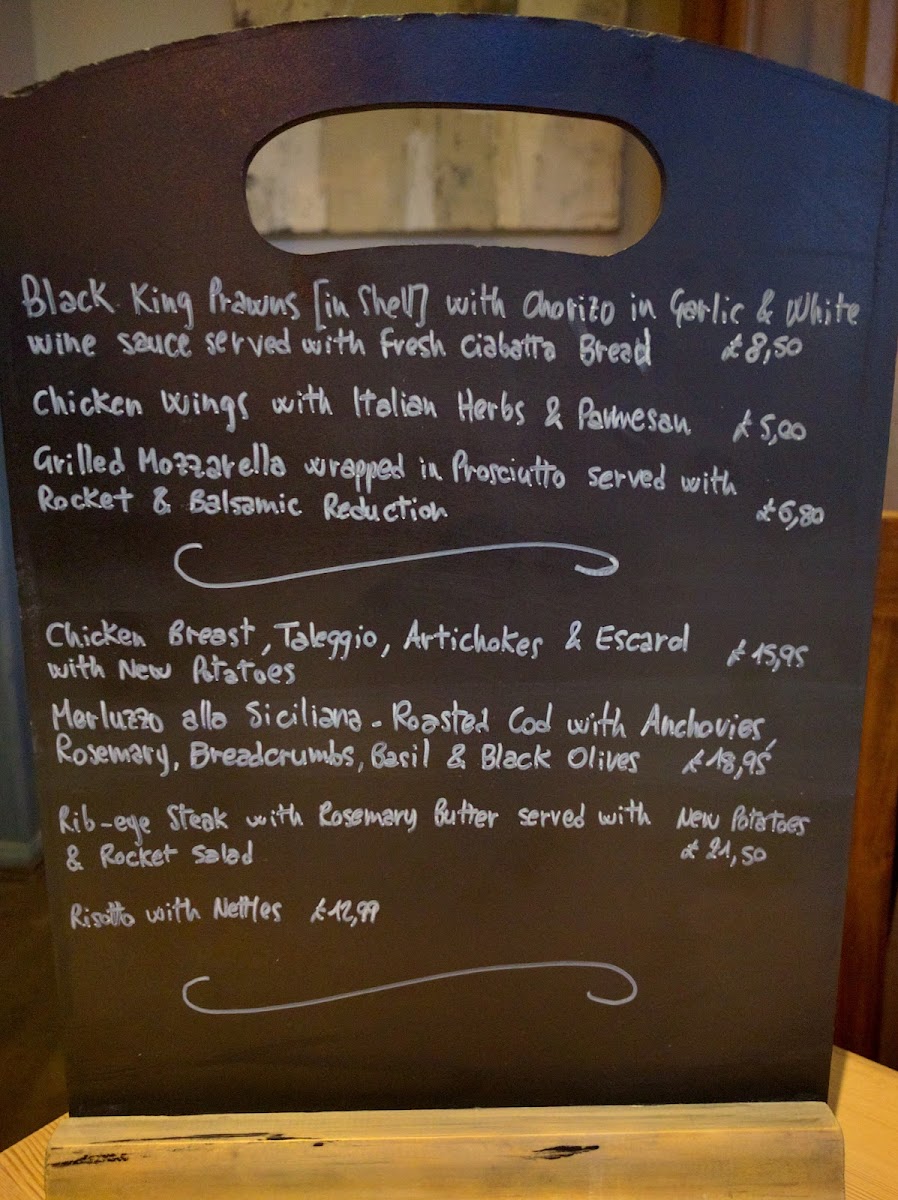 Black King Prawns [in Shell] with Chorizo in Garlic & White
wine sauce served with Fresh Ciabatta Bread £8,50
Chicken Wings with Italian Herbs & Parmesan £5,00
Grilled Mozzarella wrapped in Prosciutto served with
Rocket & Balsamic Reduction £6,80
Chicken Breast, Taleggio, Artichokes & Escarol £15,95
with New Potatoes
Merluzzo alla Siciliana - Roasted Cod with Anchovies,
Rosemary, Breadcrumbs, Basil & Black Olives £18,95
Rib-eye Steak with Rosemary Butter served with New Potatoes
& Rocket Salad £21,50
Risotto with Nettles £12,99